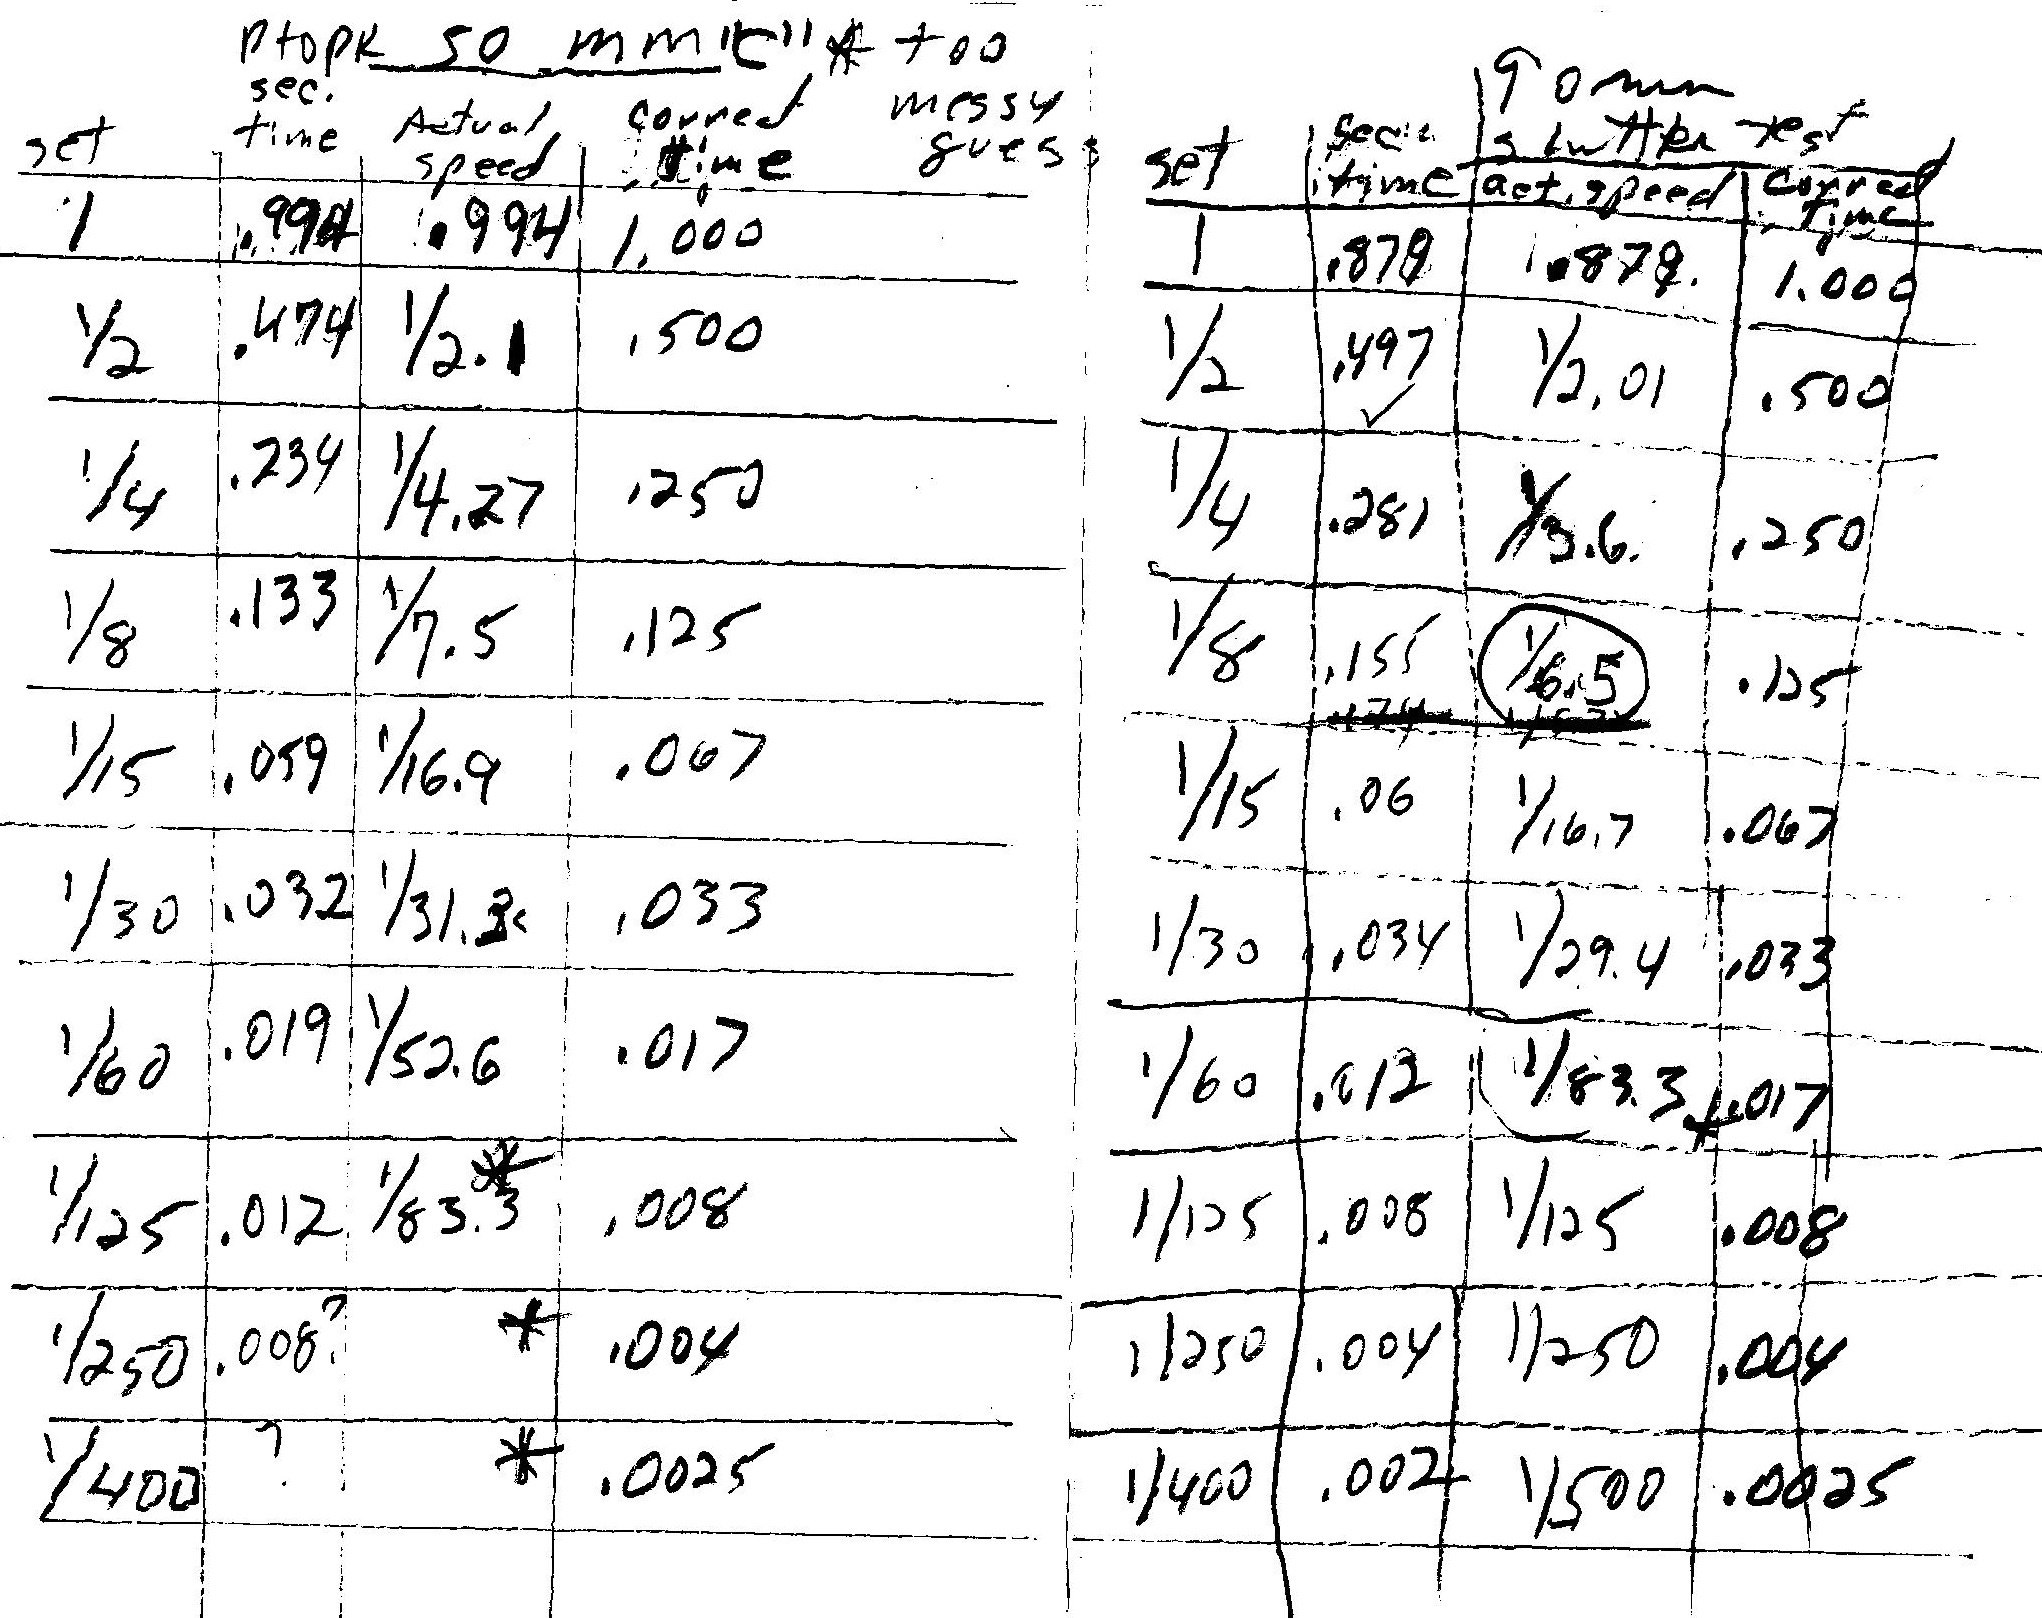 ptopk 50 mm "C" * too messy guess
set sec. time Actual speed correct time
1 .994 .994 1.000
1/2 .474 1/2.1 .500
1/4 .234 1/4.27 .250
1/8 .133 1/7.5 .125
1/15 .059 1/16.9 .067
1/30 .032 1/31.3 .033
1/60 .019 1/52.6 .017
1/125 .012 1/83.3 * .008
1/250 .008? * .004
1/400 ? * .0025
90mm shutter test
set sec. time act. speed correct time
1 .879 .879. 1.000
1/2 .497 ✓ 1/2.01 .500
1/4 .281 1/3.6. .250
1/8 .155 1/6.5 .125
1/15 .06 1/16.7 .067
1/30 .034 1/29.4 .033
1/60 .012 1/83.3 * .017
1/125 .008 1/125 .008
1/250 .004 1/250 .004
1/400 .002 1/500 .0025